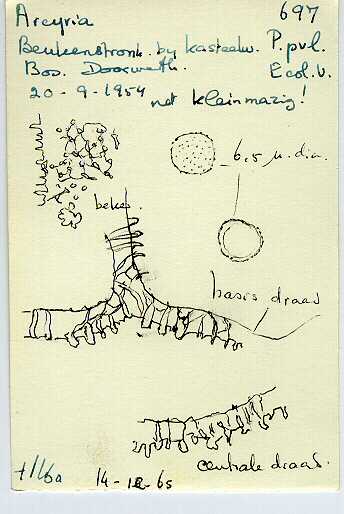 Arcyria 697
Beukenstronk. by kasteelw. P.pvl.
Bos. Doorwerth. Ecol.v.
20-9-1954
net kleinmazig!
6,5 µ. dia.
beker.
basis draad
centrale draad.
14-12-65